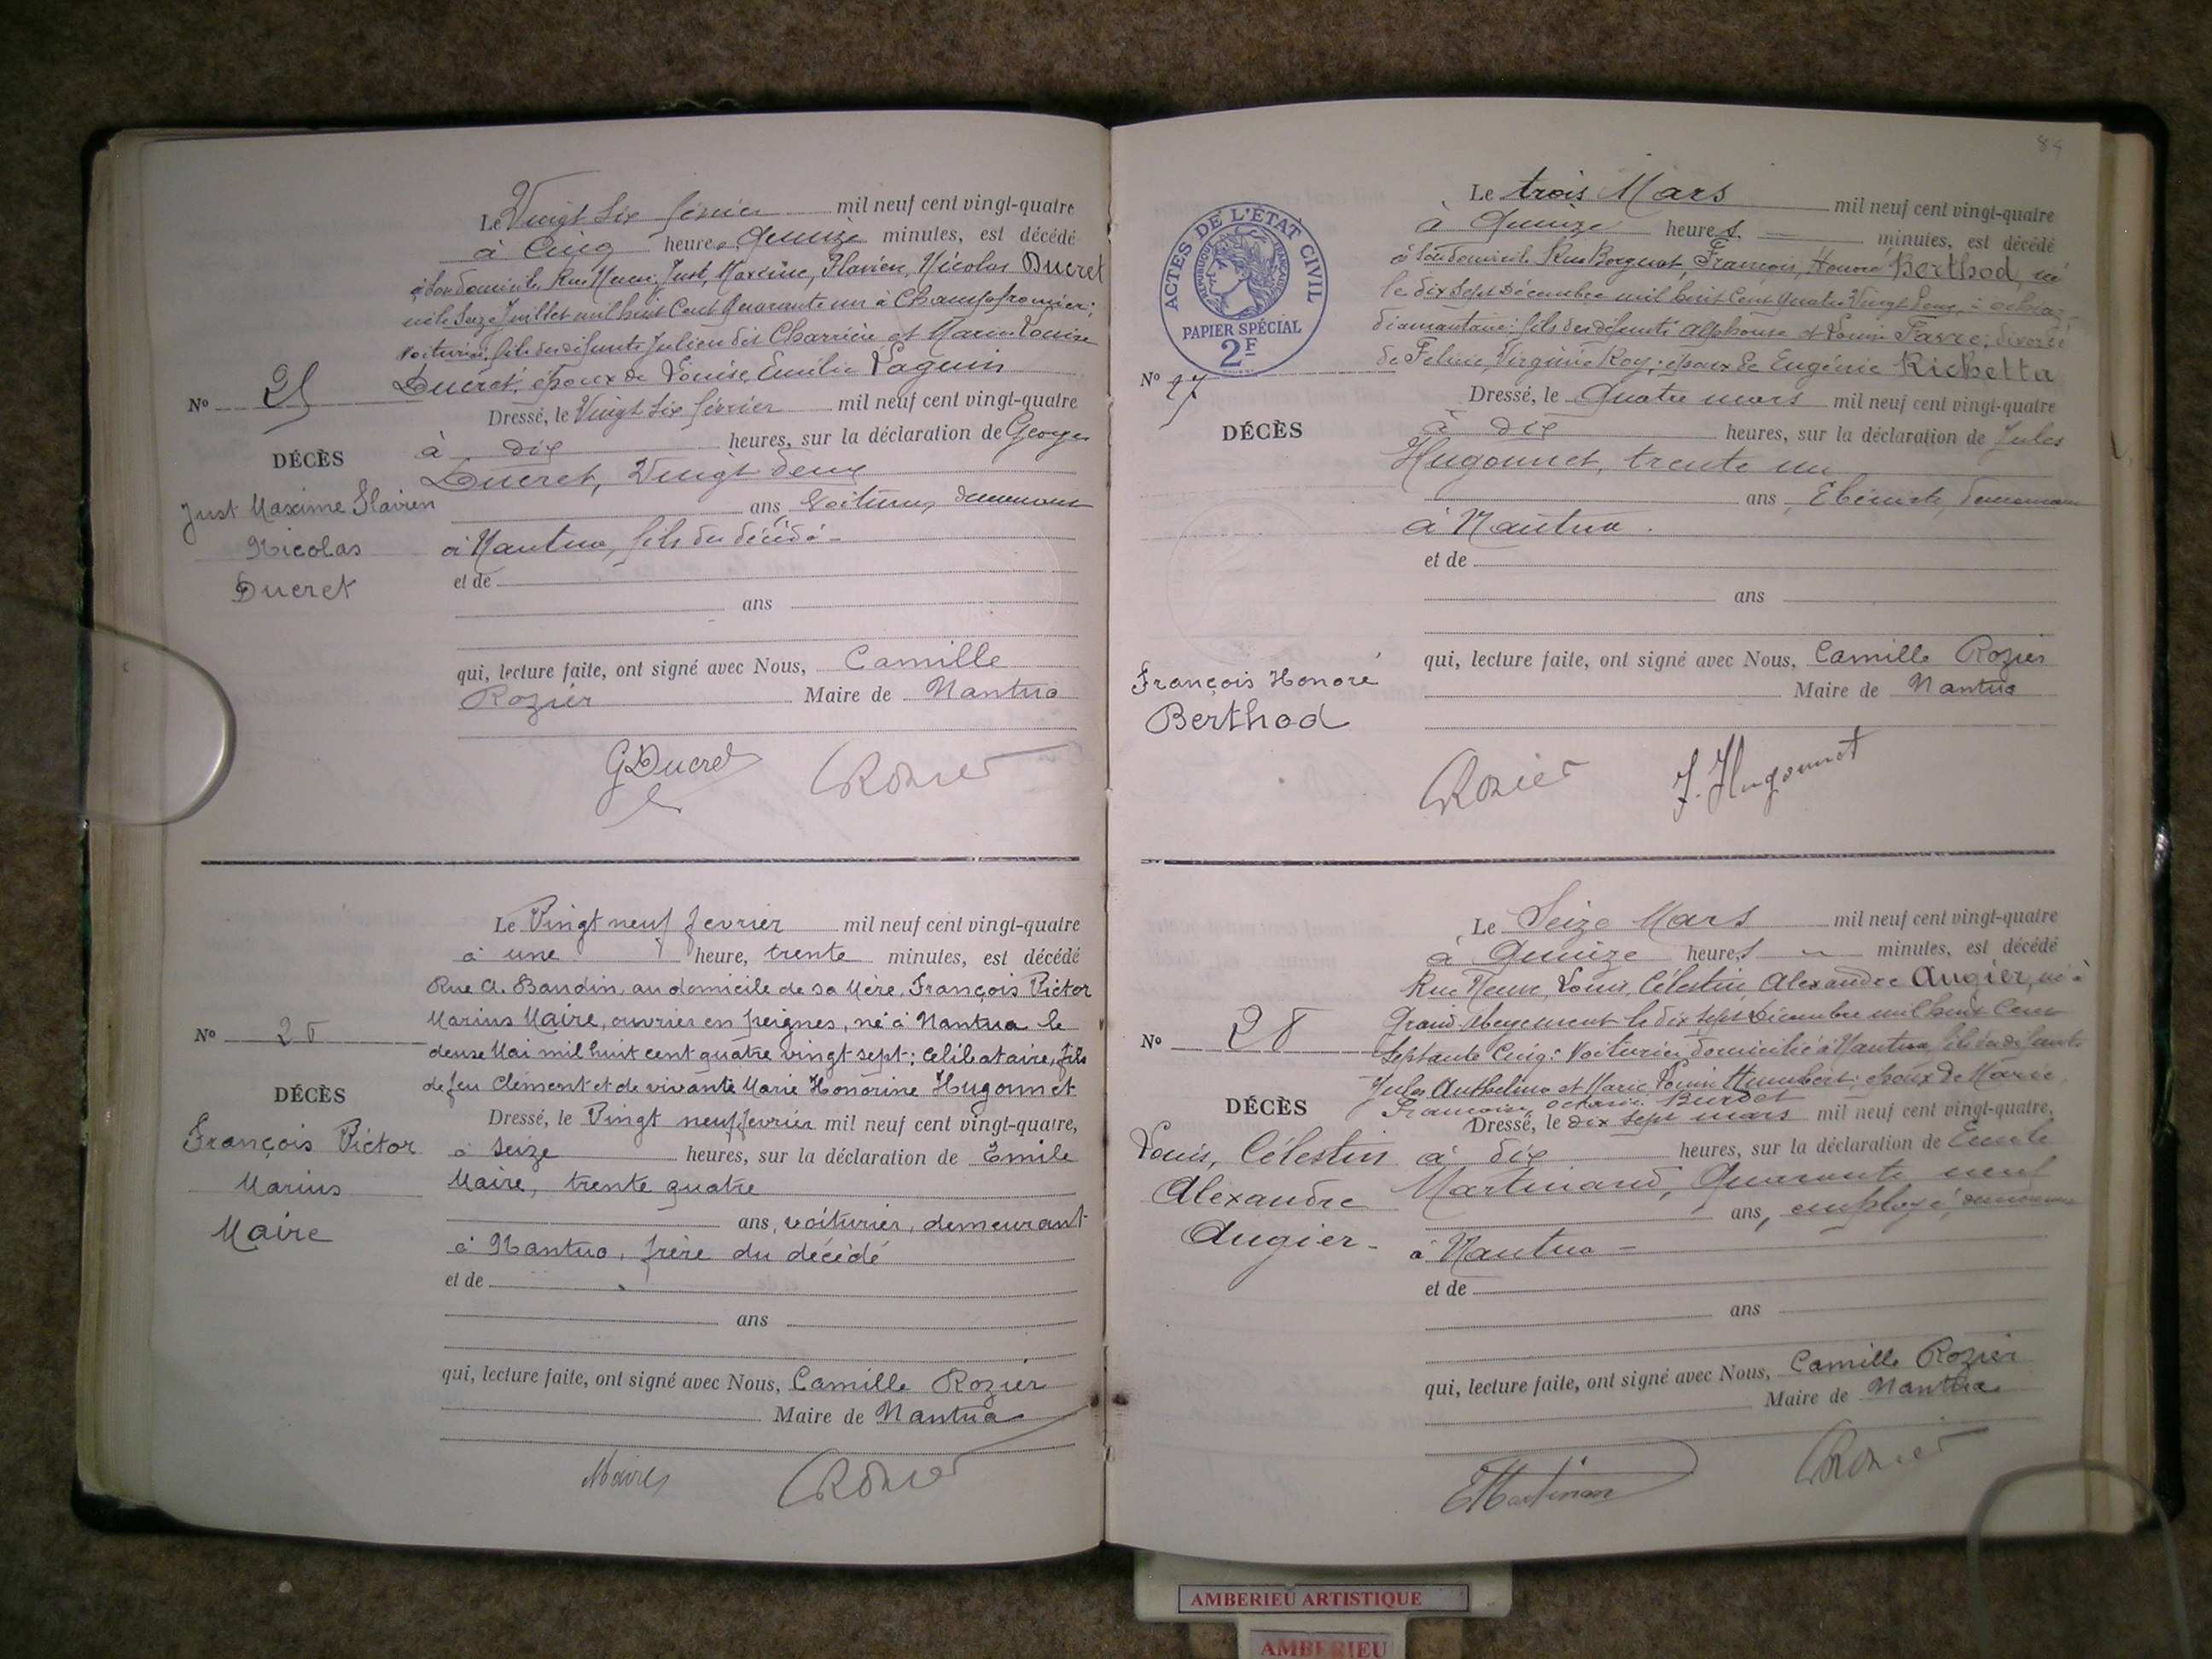 Le Vingt six février mil neuf cent vingt-quatre
à Cinq heures, Quinze minutes, est décédé
à son domicile, Rue Neuve, Just, Maxime, Flavien, Nicolas Ducret
né le Seize Juillet mil huit Cent Quarante un à Champfromier;
voiturier, fils des défunts Julien dit Charrière et Marie Louise
Ducret; époux de Louise, Emilie Paguin
Nº 25
Dressé, le Vingt six février mil neuf cent vingt-quatre
à dix heures, sur la déclaration de Georges
DÉCÈS
Ducret, Vingt deux
Just Maxime Flavien
Nicolas
Ducret
ans, voiturier, demeurant
à Nantua, fils du décédé
et de
ans
qui, lecture faite, ont signé avec Nous, Camille
Rozier Maire de Nantua
G Ducret
CRozier
Le Vingt neuf fevrier mil neuf cent vingt-quatre
à une heure, trente minutes, est décédé
Rue A. Baudin, au domicile de sa Mère, François Victor
Marius Maire, ouvrier en peignes, né à Nantua le
douze Mai mil huit cent quatre vingt sept; Célibataire, fils
de feu Clément et de vivante Marie Honorine Hugonnet
Nº 26
DÉCÈS
François Victor
Marius
Maire
Dressé, le Vingt neuf fevrier mil neuf cent vingt-quatre,
à seize heures, sur la déclaration de Emile
Maire, trente quatre
ans, voiturier, demeurant
à Nantua, frère du décédé
et de
ans
qui, lecture faite, ont signé avec Nous, Camille Rozier
Maire de Nantua
Maire
CRozier
84
ACTES DE L'ÉTAT CIVIL
RÉPUBLIQUE FRANÇAISE
PAPIER SPÉCIAL
2F
Le trois Mars mil neuf cent vingt-quatre
à Quinze heures minutes, est décédé
à son domicile Rue Borgnat, François, Honoré Berthod, né
le dix sept Décembre mil huit Cent quatre Vingt deux, à
diamantaire; fils des défunts Alphonse et Louise Favre; divorcé
de Virginie Roy; époux de Eugénie Richetta
Nº 27
DÉCÈS
François Honoré
Berthod
Dressé, le Quatre mars mil neuf cent vingt-quatre
à dix heures, sur la déclaration de Jules
Hugonnet, trente un
ans, Ebéniste, demeurant
à Nantua.
et de
ans
qui, lecture faite, ont signé avec Nous, Camille Rozier
Maire de Nantua
CRozier
J. Hugonnet
Le Seize Mars mil neuf cent vingt-quatre
à Quinze heures minutes, est décédé
Rue Neuve, Louis, Célestin, Alexandre Augier, né à
Grand-Abergement le dix sept Décembre mil huit Cent
Septante Cinq; Voiturier, domicilié à Nantua, fils des défunts
Jules Anthelme et Marie Louise Humbert; époux de Marie
Françoise, Octavie Burdet
Nº 28
DÉCÈS
Louis, Célestin
Alexandre
Augier
Dressé, le dix sept mars mil neuf cent vingt-quatre,
à dix heures, sur la déclaration de Emile
Martinand, Quarante neuf
ans, employé, demeurant
à Nantua
et de
ans
qui, lecture faite, ont signé avec Nous, Camille Rozier
Maire de Nantua
EMartinan
CRozier
AMBERIEU ARTISTIQUE
AMBERIEU